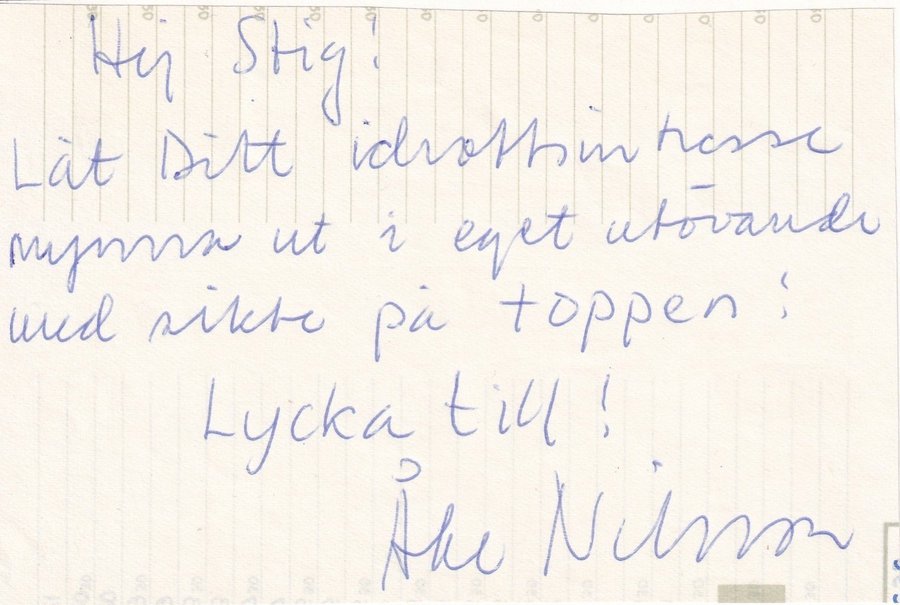 Hej Stig!
Låt Ditt idrottsintresse
mynna ut i eget utövande
med sikte på toppen!
Lycka till!
Åke Nilsson